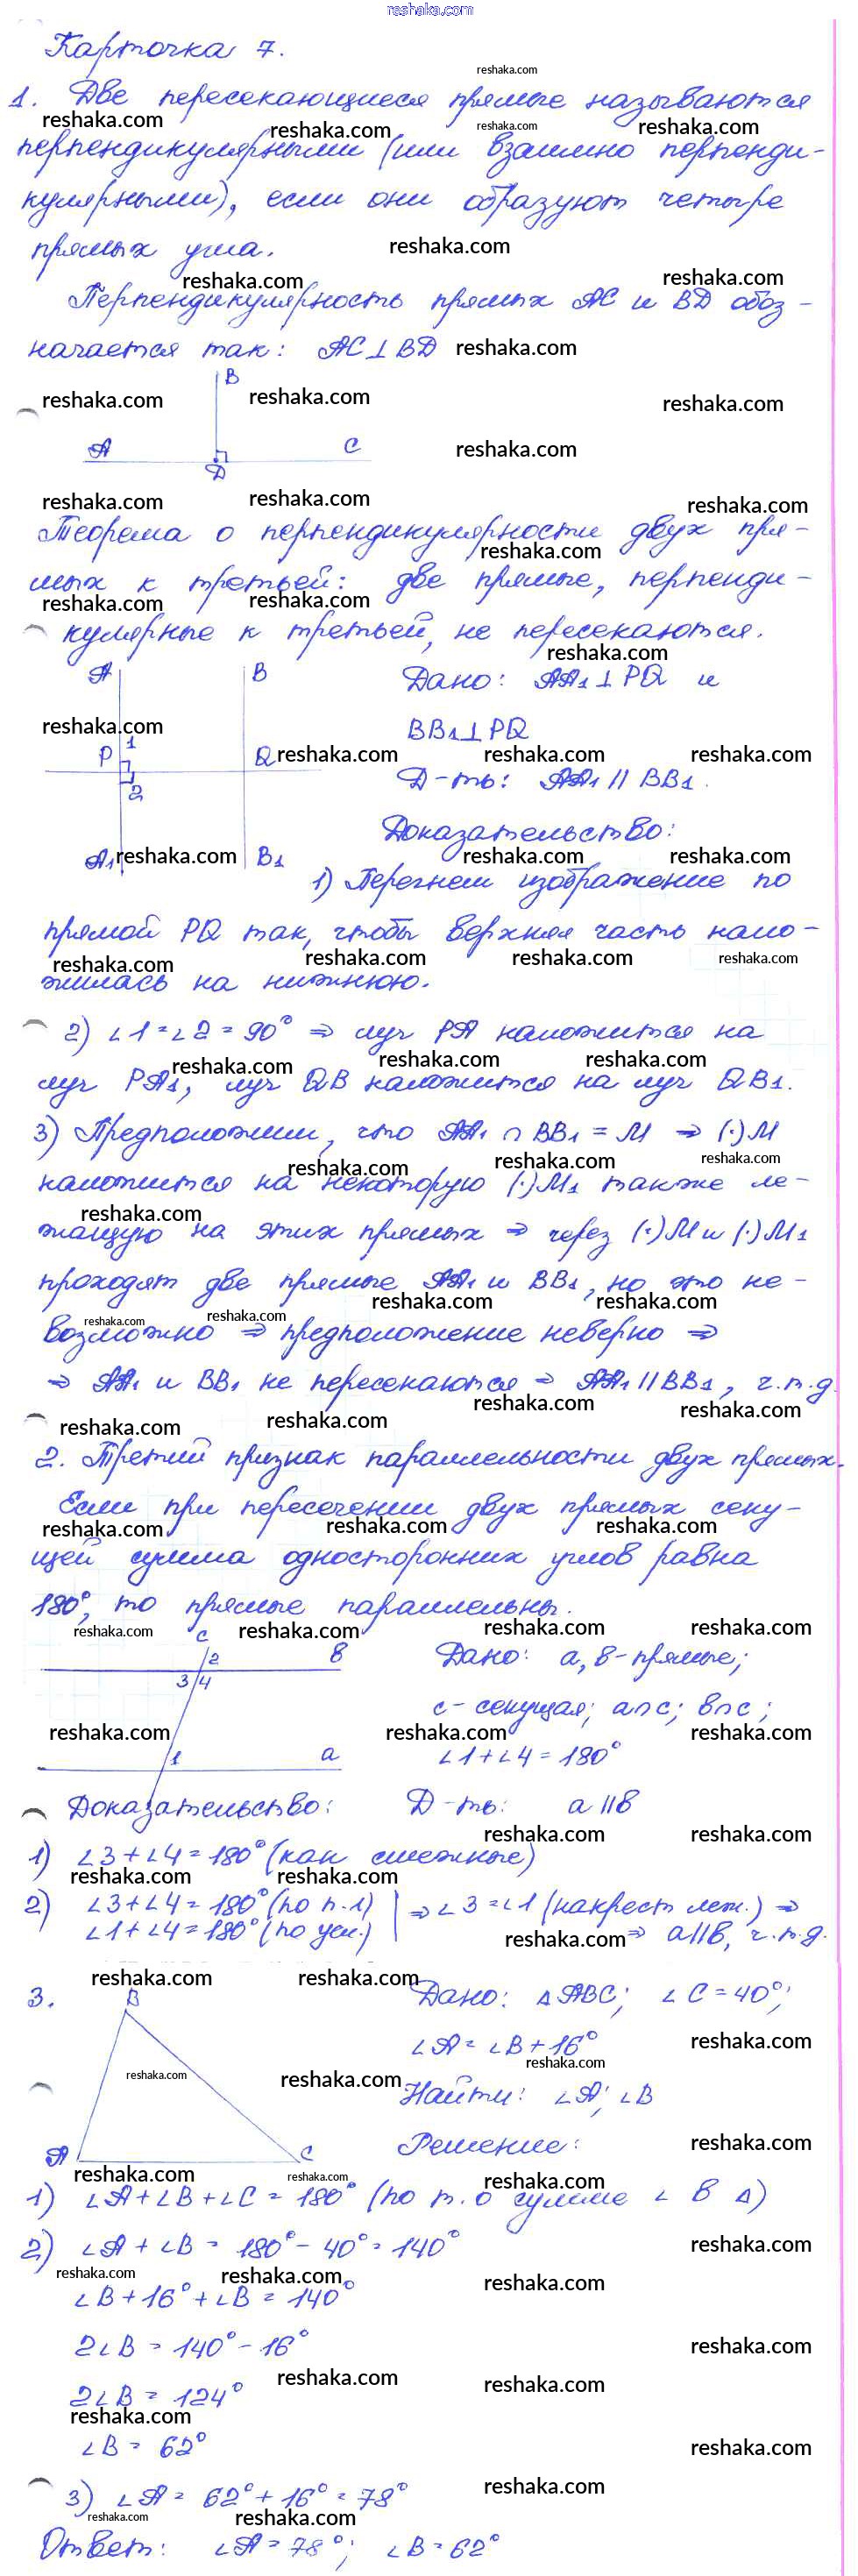 reshaka.com
Карточка 7.
1. Две пересекающиеся прямые называются
перпендикулярными (или взаимно перпенди-
кулярными), если они образуют четыре
прямых угла.
Перпендикулярность прямых AC и BD обоз-
начается так: AC⊥BD
B
A D C
Теорема о перпендикулярности двух пря-
мых к третьей: две прямые, перпенди-
кулярные к третьей, не пересекаются.
A B
P 1 Q
2
A1 B1
Дано: AA1⊥PQ и
BB1⊥PQ
Д-ть: AA1 || BB1.
Доказательство:
1) Перегнем изображение по
прямой PQ так, чтобы верхняя часть нало-
жилась на нижнюю.
2) ∠1=∠2=90° ⇒ луч PA наложится на
луч PA1, луч QB наложится на луч QB1.
3) Предположим, что AA1 ∩ BB1 = M ⇒ (·)M
наложится на некоторую (·)M1 также ле-
жащую на этих прямых ⇒ через (·)M и (·)M1
проходят две прямые AA1 и BB1, но это не-
возможно ⇒ предположение неверно ⇒
⇒ AA1 и BB1 не пересекаются ⇒ AA1 || BB1, ч.т.д.
2. Третий признак параллельности двух прямых.
Если при пересечении двух прямых секу-
щей сумма односторонних углов равна
180°, то прямые параллельны.
c 2 b
3 4
1 a
Дано: a, b - прямые;
c - секущая; a∩c; b∩c;
∠1+∠4=180°
Д-ть: a || b
Доказательство:
1) ∠3+∠4=180° (как смежные)
2) ∠3+∠4=180° (по п.1) | ⇒ ∠3=∠1 (накрест леж.) ⇒
∠1+∠4=180° (по усл.) | ⇒ a || b, ч.т.д.
3.
B
A C
Дано: △ABC; ∠C=40°;
∠A=∠B+16°
Найти: ∠A; ∠B
Решение:
1) ∠A+∠B+∠C=180° (по т. о сумме ∠ в △)
2) ∠A+∠B=180°-40°=140°
∠B+16°+∠B=140°
2∠B=140°-16°
2∠B=124°
∠B=62°
3) ∠A=62°+16°=78°
Ответ: ∠A=78°; ∠B=62°